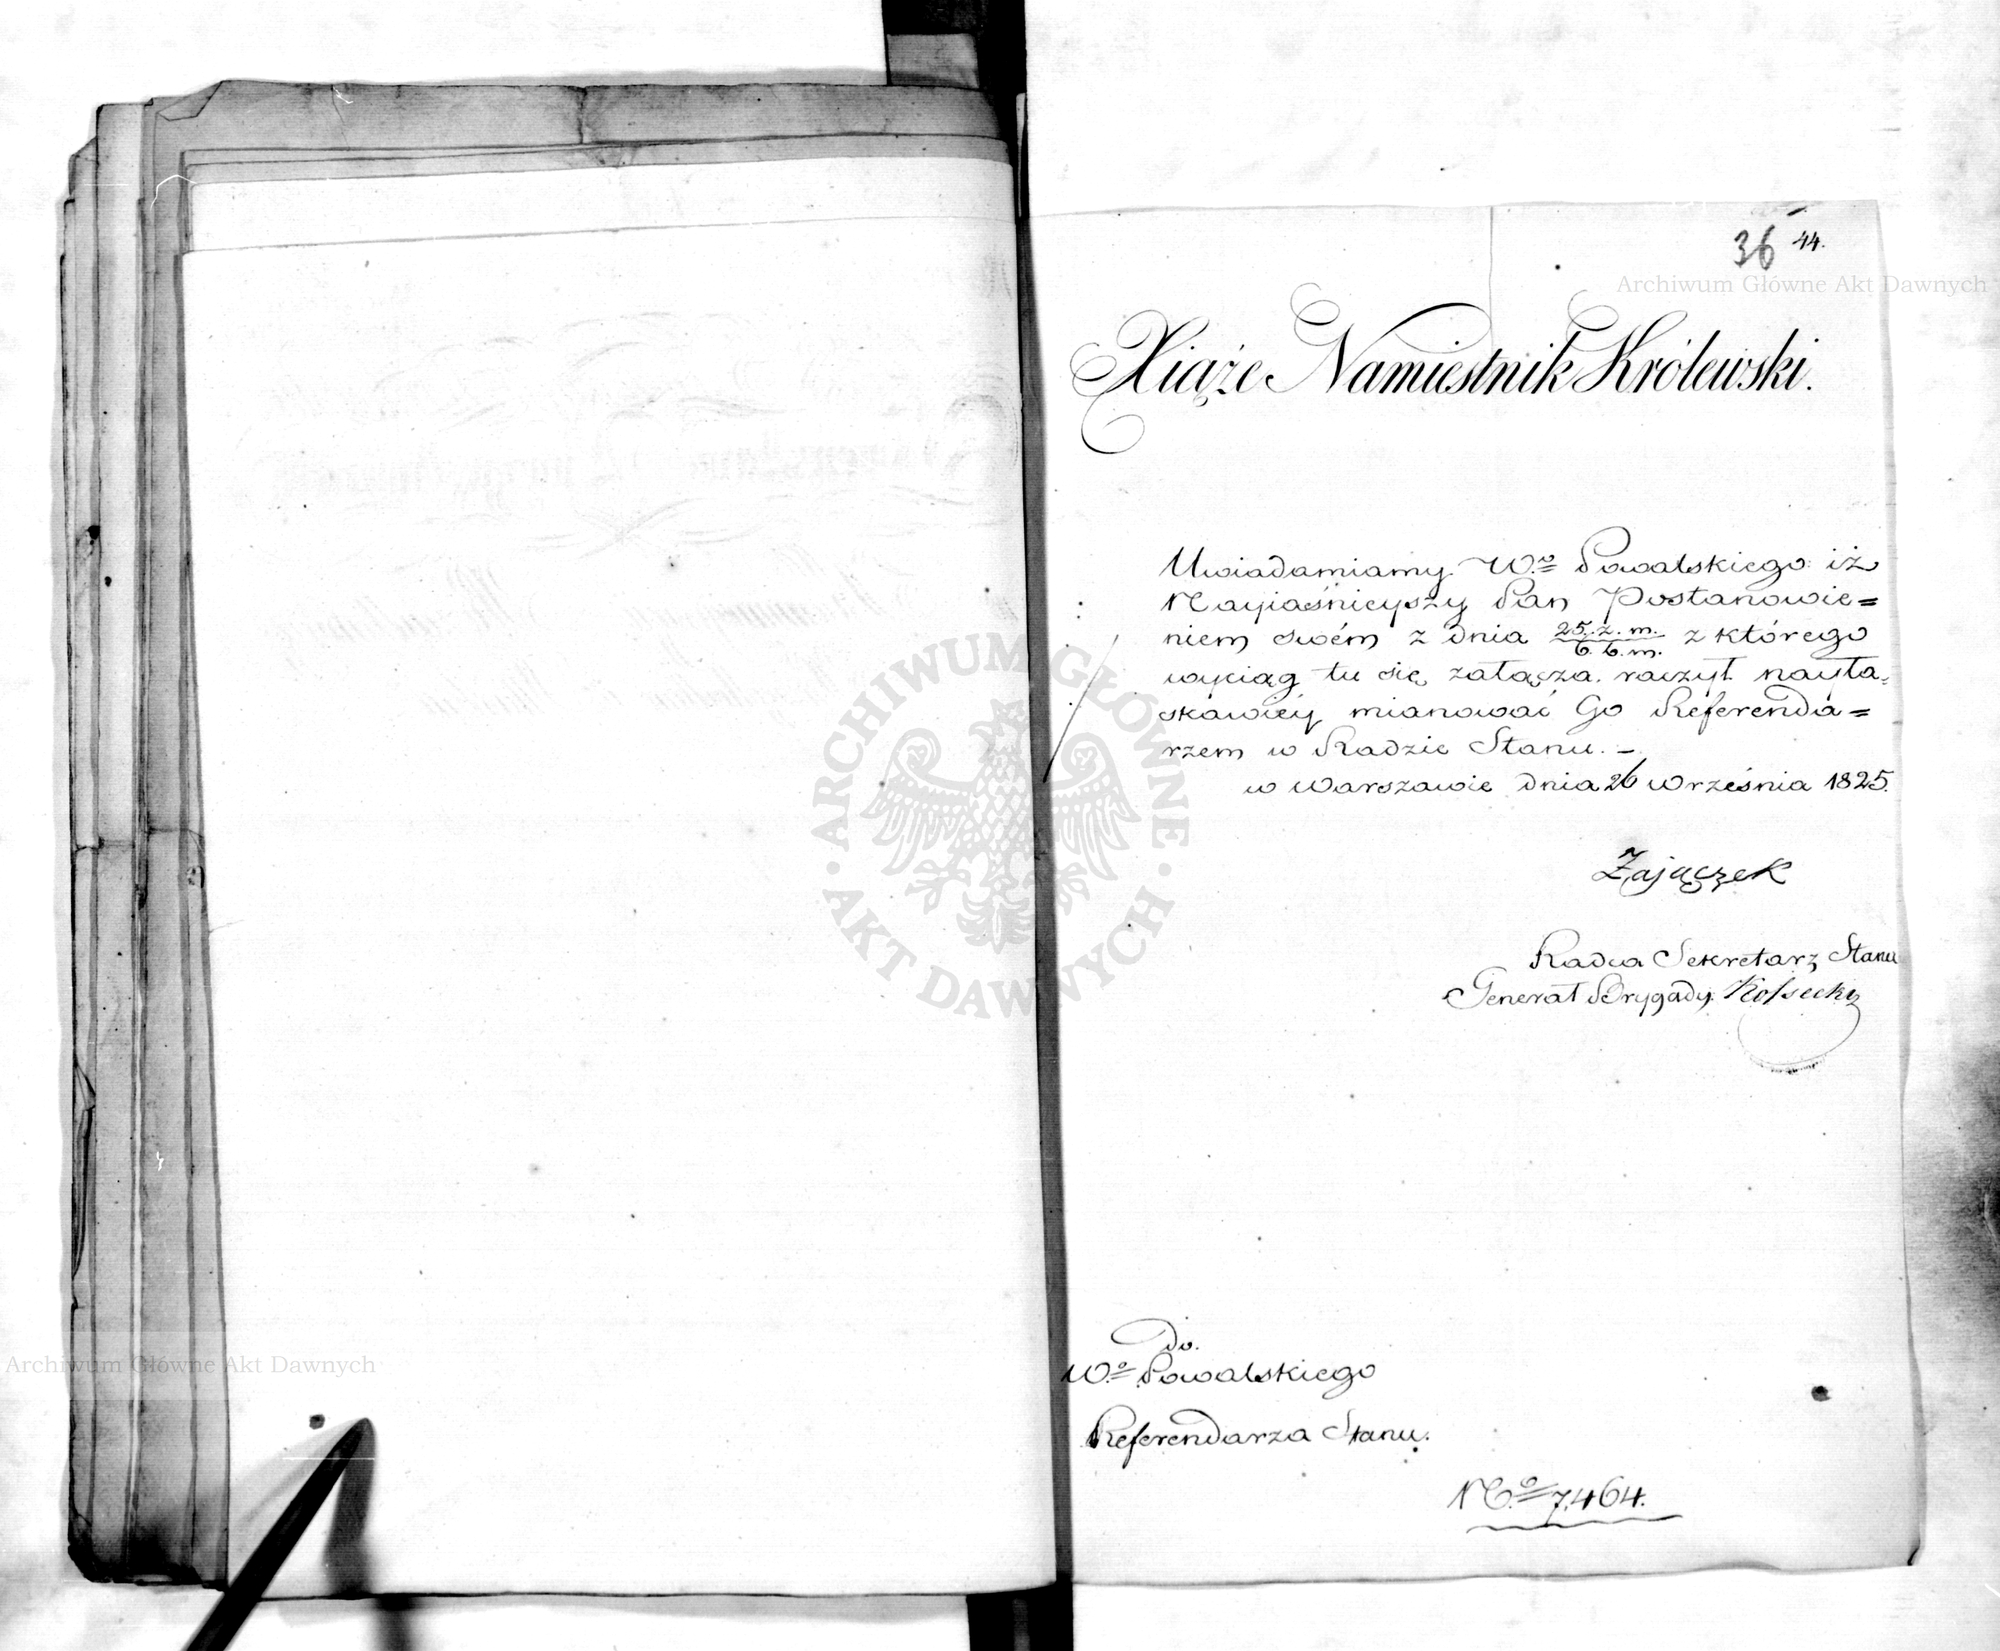 36 44.
Archiwum Główne Akt Dawnych
Xiąże Namiestnik Królewski.
Uwiadamiamy W.o Powalskiego iż
Nayiaśnieyszy Pan Postanowie=
niem swém z dnia 25. z. m. / 6. b. m. z którego
wyciąg tu się załącza. raczył nayła=
skawiéy mianować Go Referenda=
rzem w Radzie Stanu. –
w Warszawie dnia 26 Września 1825.
Zajączek
Radca Sekretarz Stanu
Generał Brygady Kossecki
do.
W.o Powalskiego
Referendarza Stanu.
N.o 7,464.
ARCHIWUM GŁÓWNE AKT DAWNYCH
Archiwum Główne Akt Dawnych